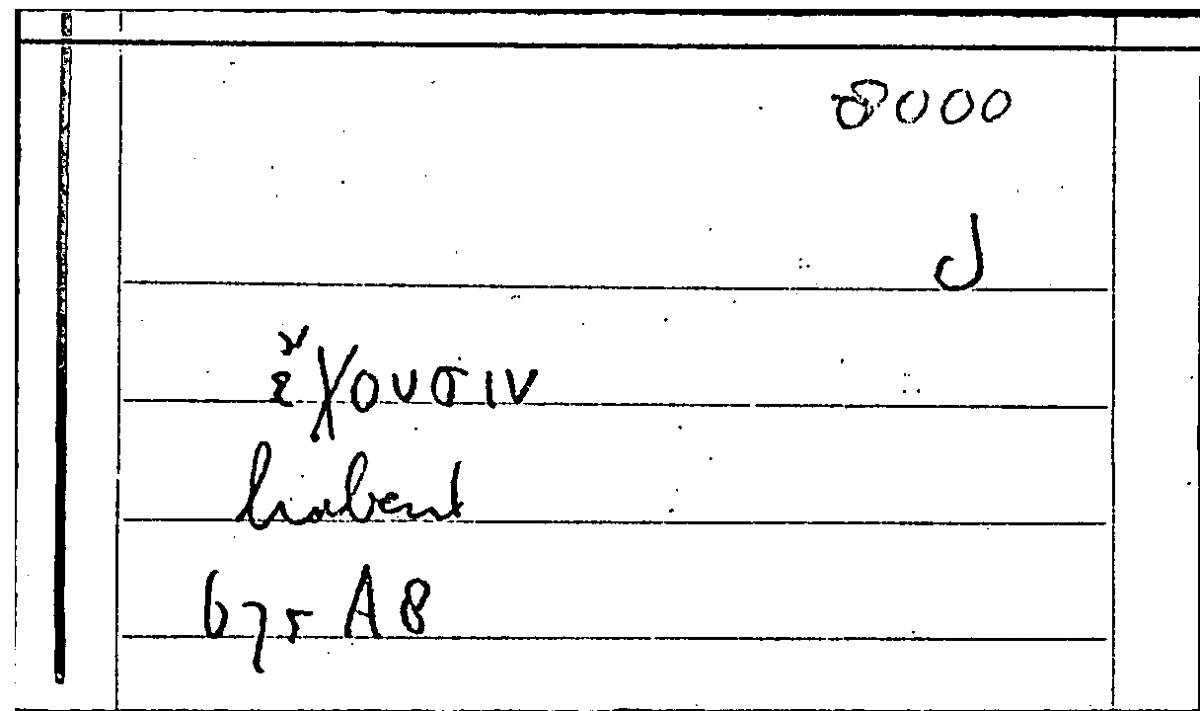 8000
J
ἔχουσιν
habent
675 AB